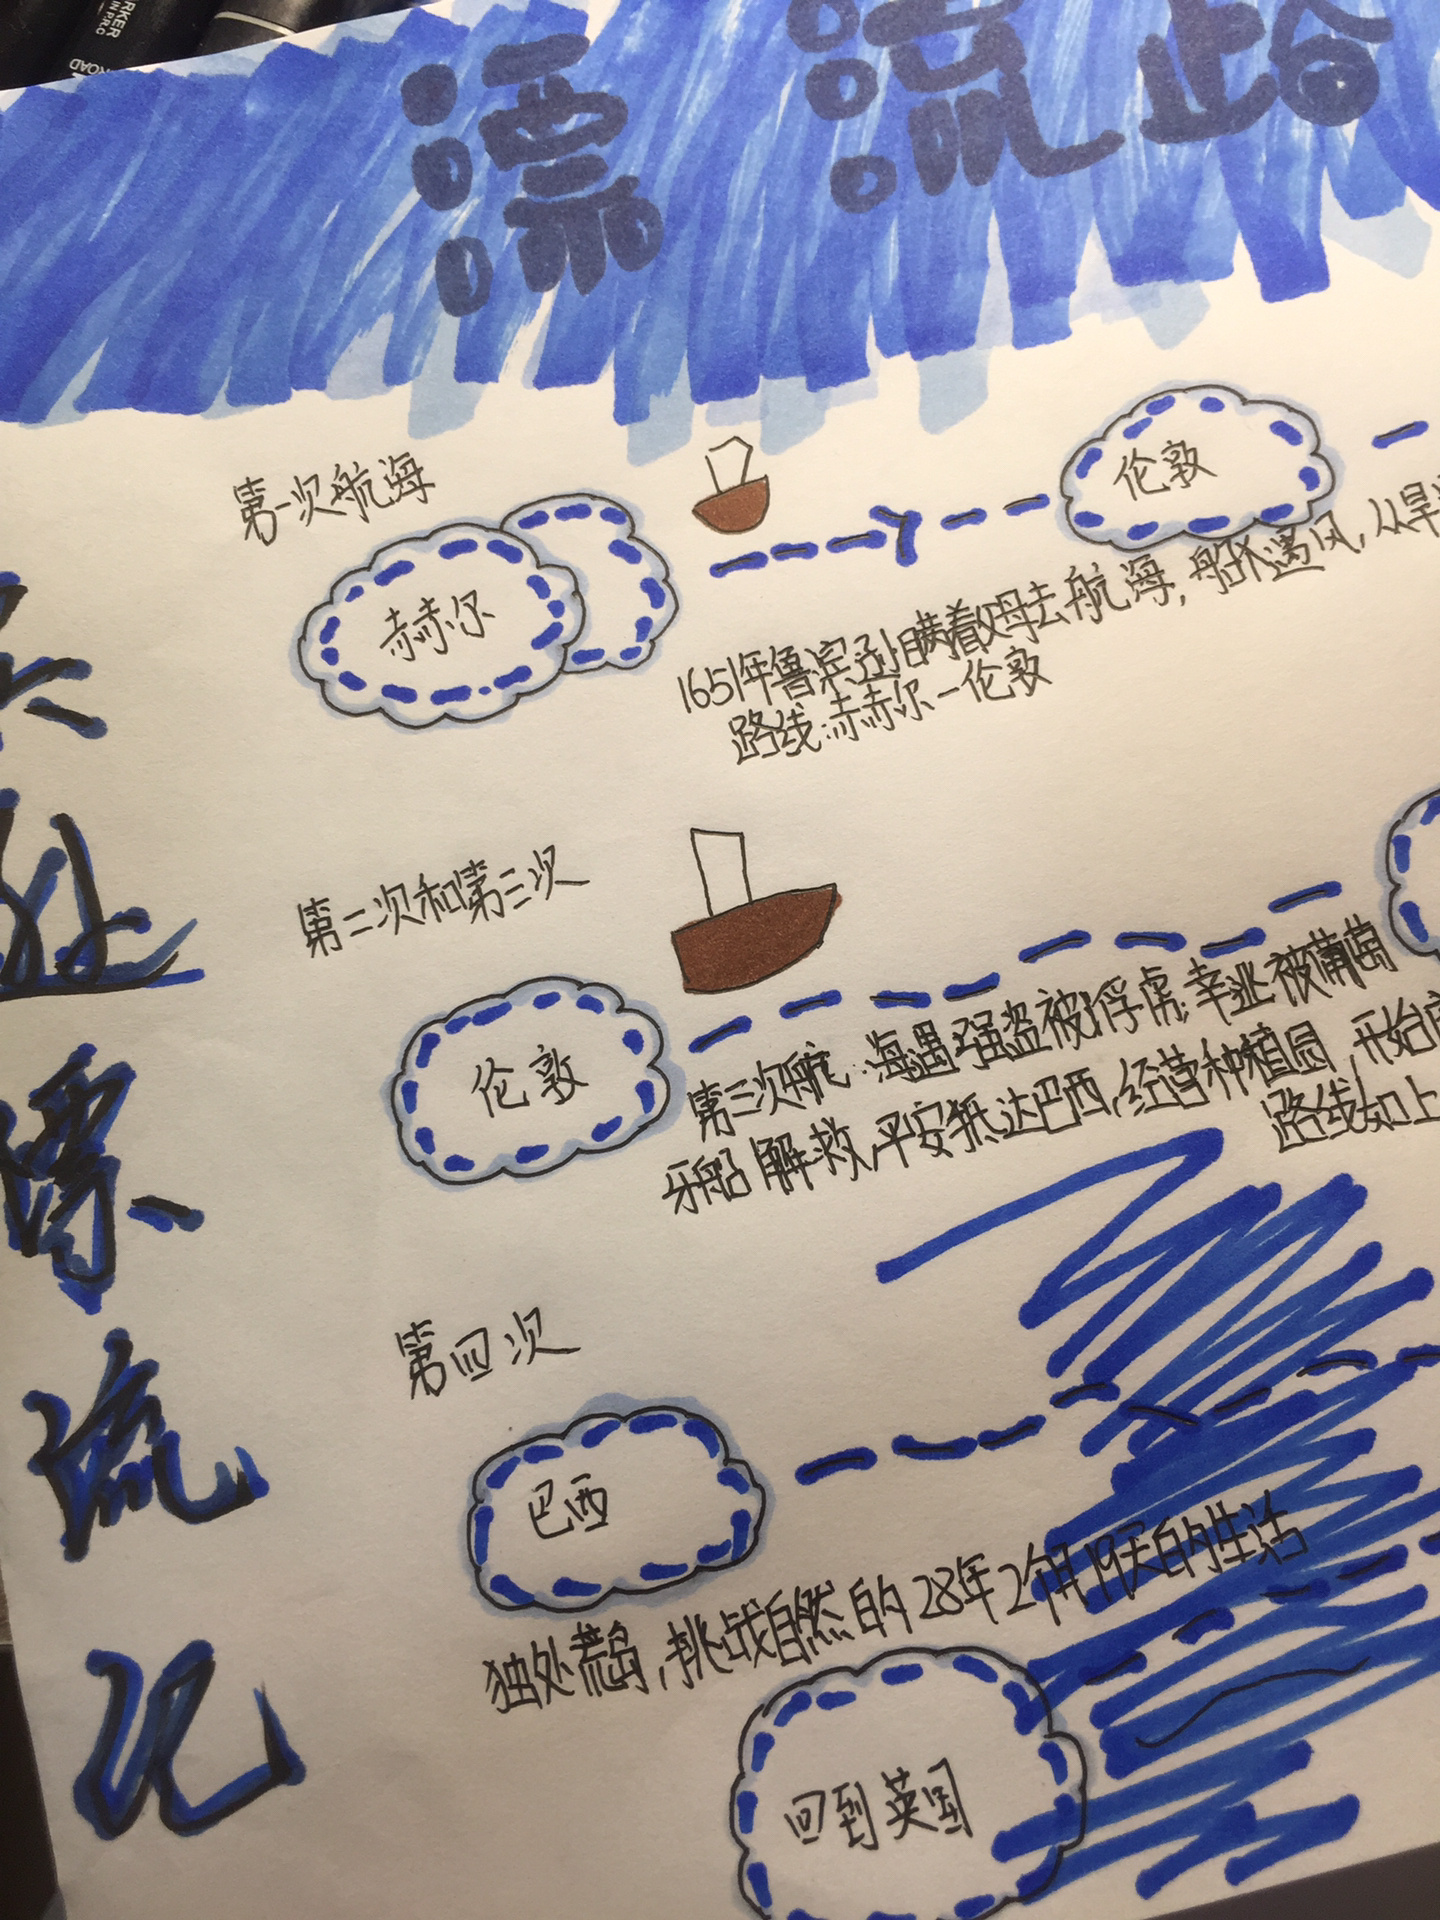 漂流路
第一次航海
赫尔
伦敦
1651年鲁宾孙瞒着父母去航海,船只遇风,从早
路线:赫尔-伦敦
第二次和第三次
伦敦
第三次航:海遇强盗被俘虏.幸逃被葡萄
牙船解救,平安抵达巴西,经营种植园,开始
路线如上
第四次
巴西
独处荒岛,挑战自然的28年2个月19天的生活
回到英国
孙漂流记